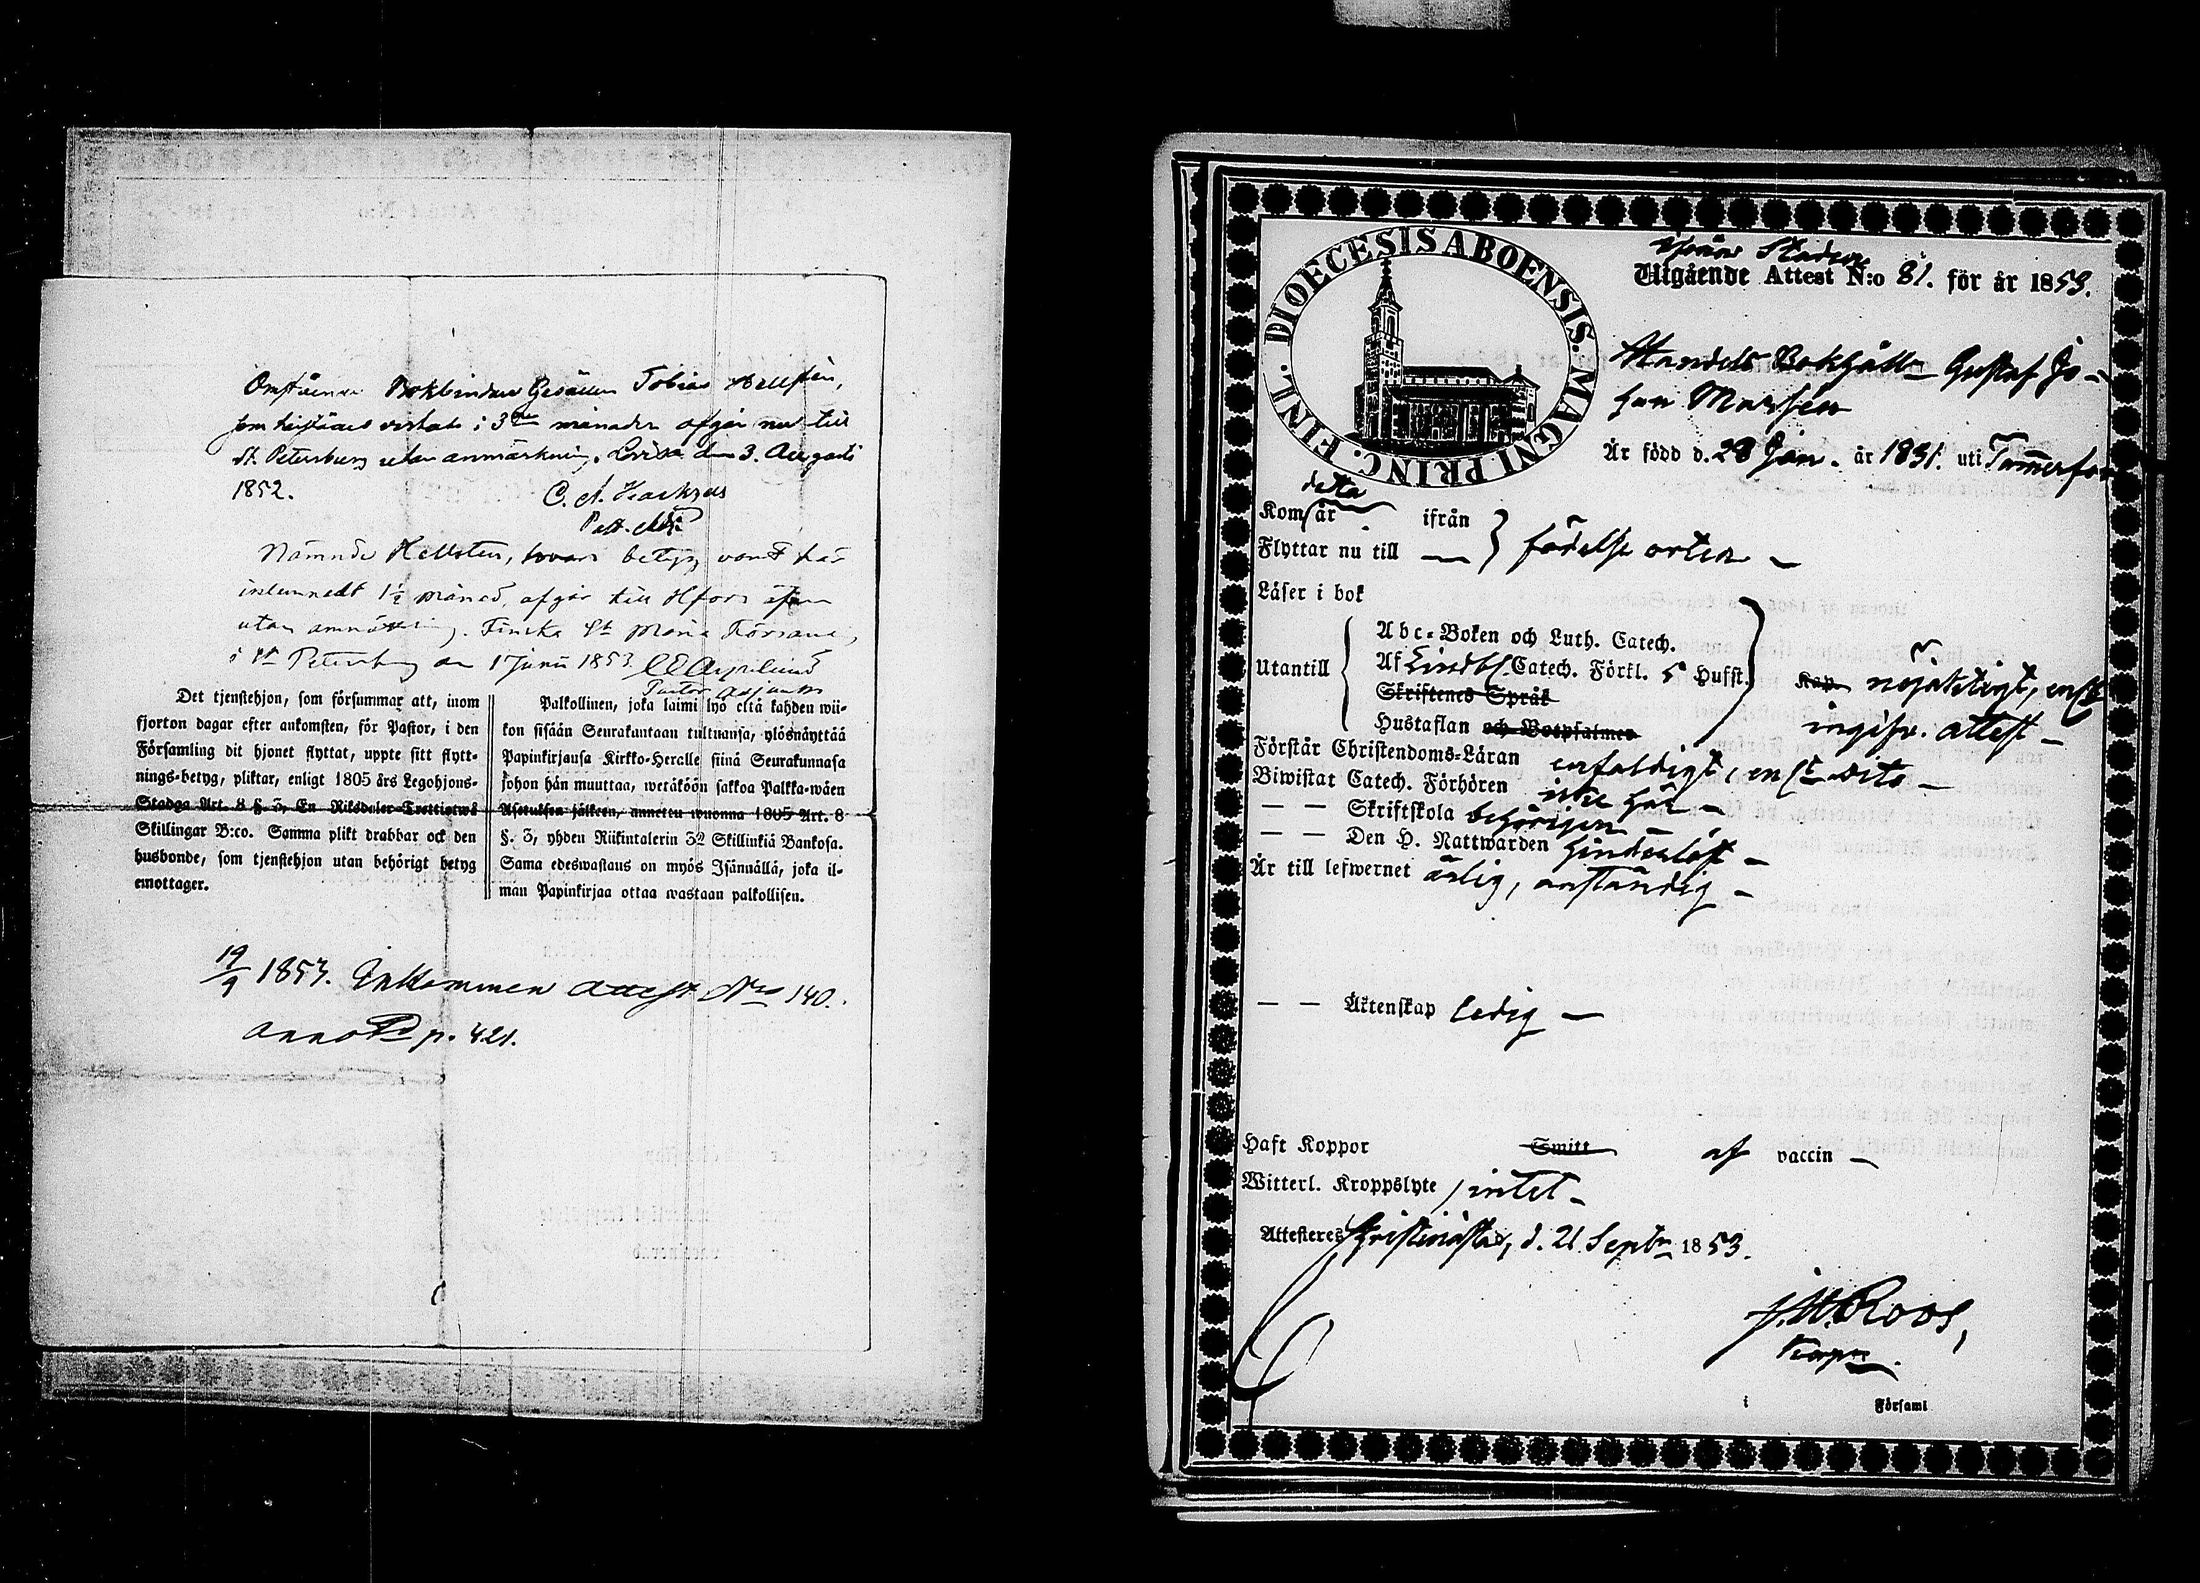 Omstående Bokbindare Gesällen Tobias Hellstén,
som härstädes vistats i 3ne månader afgår nu till
St. Petersburg utan anmärkning. Lovisa den 3. Augusti
1852.
C. A.
Past. Adj.
Nämnde Hellsten, hvars betyg varit här
inlemnadt 1½ månad, afgår till Hfors
utan anmärkning. Finska St Maria Församl.
i St Petersburg den 1 Juni 1853.
Pastor Adjunkt
Det tjenstehjon, som försummar att, inom
fjorton dagar efter ankomsten, för Pastor, i den
Församling dit hjonet flyttat, uppte sitt flytt-
nings-betyg, pliktar, enligt 1805 års Legohjons-
Stadga Art. 8 §. 3, En Riksdaler Trettiotwå
Skillingar B:co. Samma plikt drabbar ock den
husbonde, som tjenstehjon utan behörigt betyg
emottager.
Palkollinen, joka laimi lyö että kahden wii-
kon sisään Seurakuntaan tultuansa, ylösnäyttää
Papinkirjansa Kirkko-Heralle siinä Seurakunnasa
johon hän muuttaa, wetäköön sakkoa Palkka-wäen
Asetuksen jälkeen, annettu wuonna 1805 Art. 8
§. 3, yhden Riikintalerin 32 Skillinkiä Bankosa.
Sama edeswastaus on myös Isännällä, joka il-
man Papinkirjaa ottaa wastaan palkollisen.
19/9 1853. Inkommen attest No 140.
p. 421.
DIOECESIS ABOENSIS. MAGNI PRINC. FINL.
Staden
Utgående Attest N:o 81. för år 1853.
Handels Bokhåll. Gustaf Jo-
han
Är född d. 28 Jan. år 1831. uti Tammerfors
detta
Kom år ifrån
Flyttar nu till — } födelse orten —
Läser i bok
Utantill
Abc-Boken och Luth. Catech.
Af Lindbl. Catech. Förkl. 5 Hufst.
Skriftenes Språk
Hustaflan och Botpsalmer
Kap. nöjaktigt, enligt
ingifv. attest —
Förstår Christendoms-Läran enfaldigt, enligt dito —
Biwistat Catech. Förhören icke här —
— — Skriftskola behörigen —
— — Den H. Nattwarden hinderlöst —
Är till lefwernet ärlig, anständig —
— — Äktenskap ledig —
Haft Koppor Smitt af vaccin —
Witterl. Kroppslyte intet —
Attesteres Christinestad, d. 21 Septbr 1853.
J. W. Roos,
Kapn.
i Församl